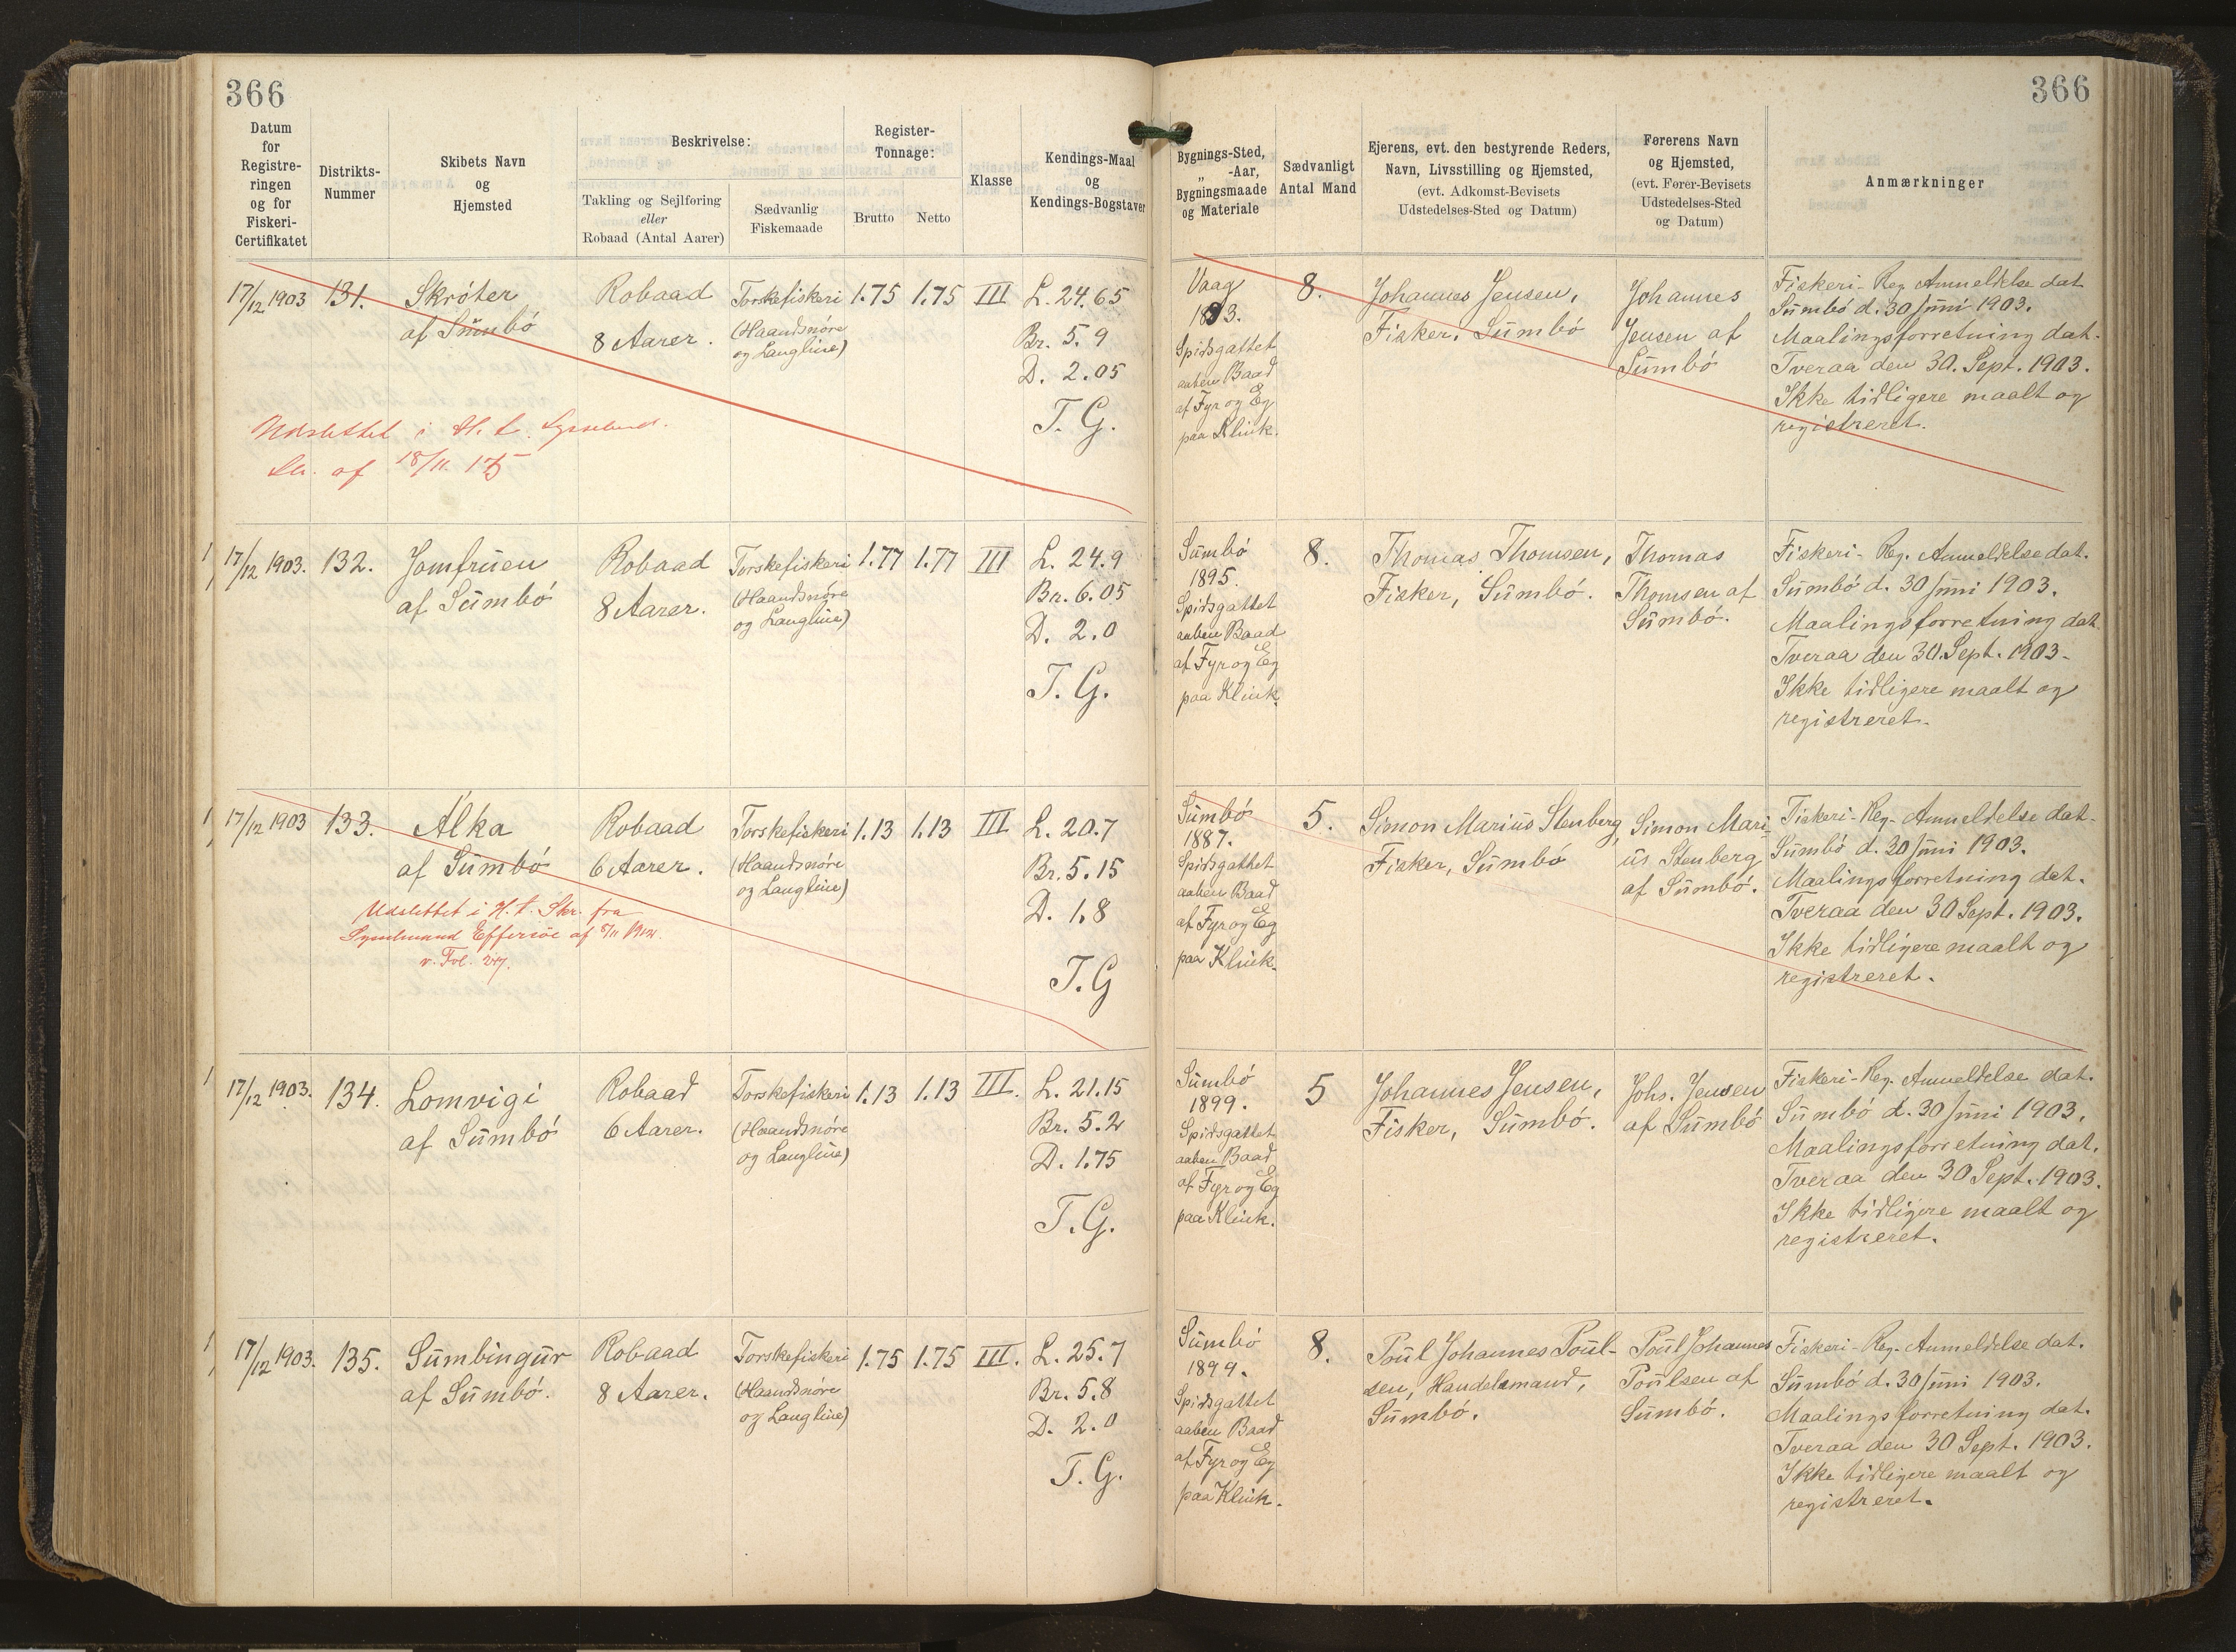 366
366
Datum for Registreringen og for Fiskeri-Certifikatet
Distrikts-Nummer
Skibets Navn og Hjemsted
Beskrivelse:
Takling og Sejlføring eller Robaad (Antal Aarer)
Sædvanlig Fiskemaade
Register-Tonnage:
Brutto
Netto
Klasse
Kendings-Maal og Kendings-Bogstaver
Bygnings-Sted, „ -Aar, Bygningsmaade og Materiale
Sædvanligt Antal Mand
Ejerens, evt. den bestyrende Reders, Navn, Livsstilling og Hjemsted, (evt. Adkomst-Bevisets Udstedelses-Sted og Datum)
Førerens Navn og Hjemsted, (evt. Fører-Bevisets Udstedelses-Sted og Datum)
Anmærkninger
17/12 1903
131.
Skróter
af Sumbó
Robaad
8 Aarer.
Torskefiskeri
(Haandsnöre
og Langline)
1.75
1.75
III
L. 24.65
Br. 5.9
D. 2.05
T. G.
Udslettet i H. t.
af 18/11
Vaag
Spidsgattet
aaben Baad
af Fyr og Eg
paa Klink.
8.
Johannes Jensen,
Fisker, Sumbó
Johannes
Jensen af
Sumbó
Fiskeri-Reg Anmeldelse dat.
Sumbó d. 30 Juni 1903.
Maalingsforretning dat.
Tveraa den 30. Sept. 1903.
Ikke tidligere maalt og
registreret.
17/12 1903.
132.
Jomfruen
af Sumbó
Robaad
8 Aarer.
Torskefiskeri
(Haandsnöre
og Langline)
1.77
1.77
III
L. 24.9
Br. 6.05
D. 2.0
T. G.
Sumbó
1895.
Spidsgattet
aaben Baad
af Fyr og Eg
paa Klink.
8.
Thomas Thomsen,
Fisker, Sumbó.
Thomas
Thomsen af
Sumbó.
Fiskeri-Reg. Anmeldelse dat.
Sumbó d. 30 Juni 1903.
Maalingsforretning dat.
Tveraa den 30. Sept. 1903.
Ikke tidligere maalt og
registreret.
17/12 1903
133.
Álka
af Sumbó
Udslettet i H. t. Skr. fra
Sysselmand Effersöe af
v. Fol.
Robaad
6 Aarer.
Torskefiskeri
(Haandsnöre
og Langline)
1.13
1.13
III
L. 20.7
Br. 5.15
D. 1.8
T. G
Sumbó
1887.
Spidsgattet
aaben Baad
af Fyr og Eg
paa Klink.
5.
Simon Marius Stenberg,
Fisker, Sumbó
Simon Mari-
us Stenberg
af Sumbó.
Fiskeri-Reg. Anmeldelse dat.
Sumbó d. 30 Juni 1903.
Maalingsforretning dat.
Tveraa den 30 Sept. 1903.
Ikke tidligere maalt og
registreret.
17/12 1903.
134.
Lomvigi
af Sumbó
Robaad
6 Aarer.
Torskefiskeri
(Haandsnöre
og Langline)
1.13
1.13
III.
L. 21.15
Br. 5.2
D. 1.75
T. G.
Sumbó
1899.
Spidsgattet
aaben Baad
af Fyr og Eg
paa Klink.
5
Johannes Jensen,
Fisker, Sumbó.
Johs. Jensen
af Sumbó
Fiskeri-Reg. Anmeldelse dat.
Sumbó d. 30 Juni 1903.
Maalingsforretning dat.
Tveraa den 30 Sept. 1903.
Ikke tidligere maalt og
registreret.
17/12 1903.
135.
Sumbingur
af Sumbó.
Robaad
8 Aarer.
Torskefiskeri
(Haandsnöre
og Langline)
1.75
1.75
III.
L. 25.7
Br. 5.8
D. 2.0
T. G.
Sumbó
1899.
Spidsgattet
aaben Baad
af Fyr og Eg
paa Klink.
8.
Poul Johannes Poul-
sen, Handelsmand,
Sumbó.
Poul Johannes
Poulsen af
Sumbó.
Fiskeri-Reg. Anmeldelse dat.
Sumbó d. 30 Juni 1903.
Maalingsforretning dat.
Tveraa den 30 Sept. 1903.
Ikke tidligere maalt og
registreret.